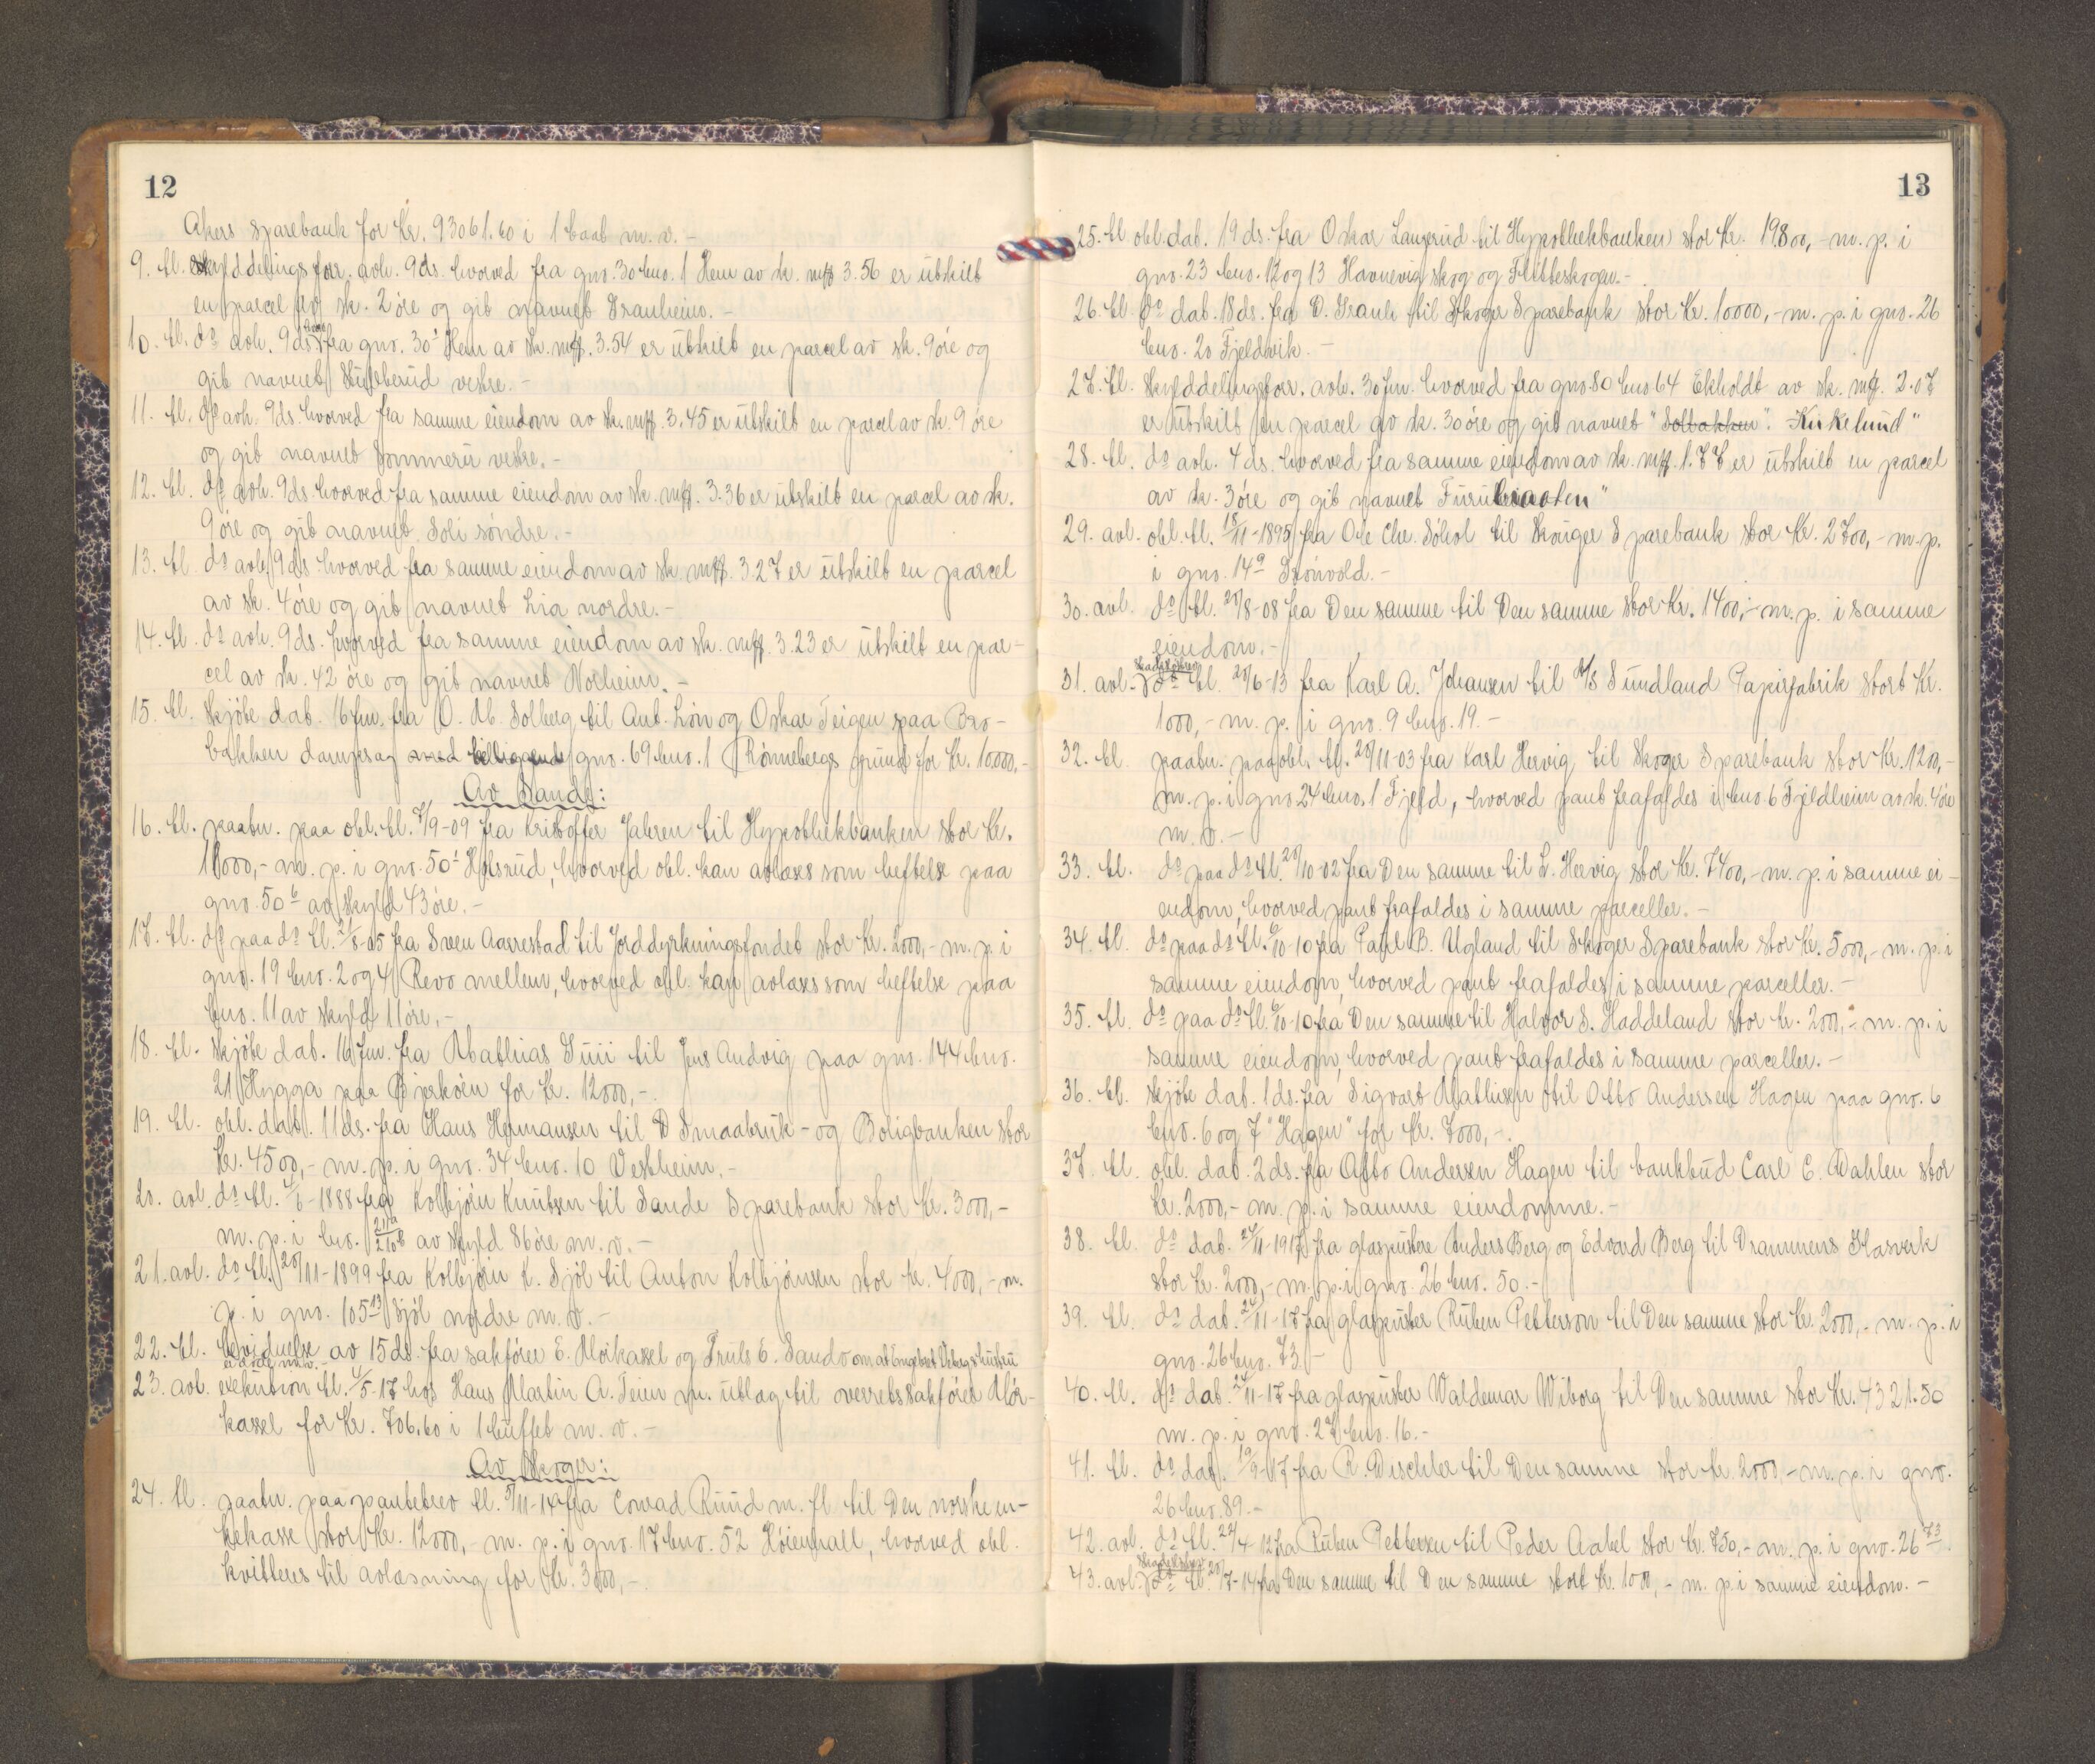 12
Akers sparebank for kr. 93061.60 i 1 baat m. v. -
9. tl. skylddelingsforr. avh. 9ds. hvorved fra gno. 30 bno. 1 Hem av sk. mk 3.56 er utskilt
en parcel av sk. 2 øre og git navnet Granheim. -
10. tl. do avh. 9ds. fra gno. 30¹ Hem av sk. mk. 3.54 er utskilt en parcel av sk. 9 øre og
git navnet vestre. -
11. tl. do avh. 9ds. hvorved fra samme eiendom av sk. mk. 3.45 er utskilt en parcel av sk. 9 øre
og git navnet Sommero vestre. -
12. tl. do avh. 9ds. hvorved fra samme eiendom av sk. mk. 3.36 er utskilt en parcel av sk.
9 øre og git navnet Soli søndre. -
13. tl. do avh. 9ds. hvorved fra samme eiendom av sk. mk. 3.27 er utskilt en parcel
av sk. 4 øre og git navnet Lia nordre. -
14. tl. do avh. 9ds. hvorved fra samme eiendom av sk. mk. 3.23 er utskilt en par-
cel av sk. 42 øre og git navnet Solheim. -
15. tl. skjøte dat. 16 fm. fra O. M. Solberg til Ant. Løn og Oskar Teigen paa Bro-
bakken dampsag med tilliggende gno. 69 bno. 1 Rønnebergs grund for kr. 10.000,-
Av Sande:
16. tl. paatn. paa obl. tl. 7/9-09 fra Kristoffer Jahren til Hypothekbanken stor kr.
11000,- m. p. i gno. 50¹ Holsrud, hvorved obl. kan avlæses som heftelse paa
gno. 50⁶ av skyld 43 øre. -
17. tl. do paa do tl. 2/8-05 fra Sven Aarrestad til Jorddyrkningsfondet stor kr. 2000,- m. p. i
gno. 19 bno. 2 og 4 Revo mellem, hvorved obl. kan avlæses som heftelse paa
bno. 11 av skyld 11 øre. -
18. tl. skjøte dat. 16 fm. fra Mathias Gui til Jens Andvig paa gno. 144 bno.
21 Hygga paa Bjerkøen for kr. 12000,-.
19. tl. obl. dat. 11 ds. fra Hans Hermansen til D Smaabruk- og Boligbanken stor
kr. 4500,- m. p. i gno. 34 bno. 10 Vestheim. -
20. avl. do tl. /6-1888 fra Kolbjørn Knutsen til Sande Sparebank stor kr. 3000,-
m. p. i bno. av skyld 86 øre m. v. -
21. avl. do tl. 20/11-1899 fra Kolbjørn K. Sjøl til Anton Kolbjørnsen stor kr. 4000,- m.
p. i gno. 105¹³ Sjøl nordre m. v. -
22. tl. bevidnelse av 15 ds. fra sakfører E. Mørkassel og Truls E. Sando om at Engebret hustru
er døde m. v. -
23. avl. exekution tl. 4/5-17 hos Hans Martin A. Teien m. utlæg til overretssakfører Mør-
kassel for kr. 706.60 i 1 buffet m. v. -
Av Skoger:
24. tl. paatn. paa pantebrev tl. /11-14 fra Conrad Ruud m. fl. til Den norske en-
kekasse stor kr. 12000,- m. p. i gno. 17 bno. 52 Høienhall, hvorved obl.
kvitteres til avlæsning for kr. 3000,-.
13
25. tl obl. dat. 19 ds. fra Oskar Langerud til Hypothekbanken stor kr. 19800,- m. p. i
gno. 23 bno. 12 og 13 Havnevig skog og Flitteskogen. -
26. tl. do dat. 18 ds. fra O. Granli til Skoger Sparebank stor kr. 10000,- m. p. i gno. 26
bno. 20 Fjeldvik. -
27. tl. skylddelingsforr. avh. 30 fm. hvorved fra gno 80 bno 64 Ekholdt av sk. mk. 2.07
er utskilt en parcel av sk. 30 øre og git navnet "Solbakken". Kirkelund"
28. tl. do avh. 4 ds. hvorved fra samme eiendom av sk. mk. 1.77 er utskilt en parcel
av sk. 3 øre og git navnet Furubraaten"
29. avl. obl. tl. 18/11-1895 fra Ole Chr. Søhol til Skouger Sparebank stor kr. 2700,- m. p.
i gno. 14⁹ Grønvold. -
30. avl. do tl. 20/8-08 fra Den samme til Den samme stor kr. 1400,- m. p. i samme
eiendom. -
31. avl. skadesløsbr. do tl. 20/6-13 fra Karl A. Johansen til A/S Sundland Papirfabrik stort kr.
1000,- m. p. i gno. 9 bno. 19. -
32. tl. paatn. paa obl. tl. 20/11-03 fra Karl Hervig til Skoger Sparebank stor kr. 1200,-
m. p. i gno 24 bno. 1 Fjeld, hvorved pant frafaldes i bno 6 Fjeldheim av sk. 4 øre
m. v. -
33. tl. do paa do tl. 20/10-02 fra Den samme til L. Hervig stor kr. 7400,- m. p. i samme ei-
endom, hvorved pant frafaldes i samme parceller. -
34. tl. do paa do tl. 6/10-10 fra Paul B. Ugland til Skoger Sparebank stor kr. 5000,- m. p. i
samme eiendom, hvorved pant frafaldes i samme parceller. -
35. tl. do paa do tl. 6/10-10 fra Den samme til Halvor S. Haddeland stor kr. 2000,- m. p. i
samme eiendom, hvorved pant frafaldes i samme parceller. -
36. tl. skjøte dat. 1 ds. fra Sigvart Mathisen til Otto Andersen Hagen paa gno. 6
bno. 6 og 7 "Hagen" for kr. 7000,-.
37. tl. obl. dat. 2 ds. fra Otto Andersen Hagen til bankbud Carl E. Dahlen stor
kr. 2000,- m. p. i samme eiendomme. -
38. tl. do dat. 24/11-1917 fra glaspuster Anders Berg og Edvard Berg til Drammens Glasverk
stor kr. 2000,- m. p. i gno. 26 bno. 50. -
39. tl. do dat. 24/11-17 fra glaspuster Ruben Petterson til Den samme stor kr. 2000,- m. p. i
gno. 26 bno. 73. -
40. tl. do dat. 24/11-17 fra glaspuster Waldemar Wiborg til Den samme stor kr. 4321.50
m. p. i gno. 27 bno. 16. -
41. tl. do dat. 19/9-17 fra R. Dischler til Den samme stor kr. 2000,- m. p. i gno.
26 bno. 89. -
42. avl. do tl. 22/4-12 fra Ruben Pettersen til Peder Aabel stor kr. 750,- m. p. i gno. 26⁷³
43. avl. skadesløsbr. do tl. 20/7-14 fra Den samme til Den samme stort kr. 1000,- m. p. i samme eiendom. -